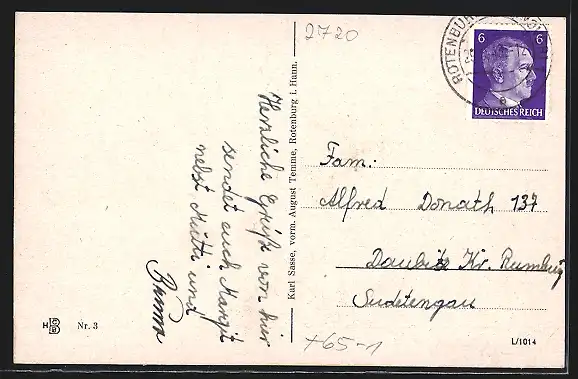 2720
ROTENBURG
6 6
DEUTSCHES REICH
Herzliche Grüße von hier
sendet euch Margit
nebst Mutti und
Karl Sasse, vorm. August Temme, Rotenburg i. Hann.
Fam:
Alfred Donath 137
Daubitz Kr. Rumburg
Sudetengau
+65-1
HB Nr. 3
L/1014